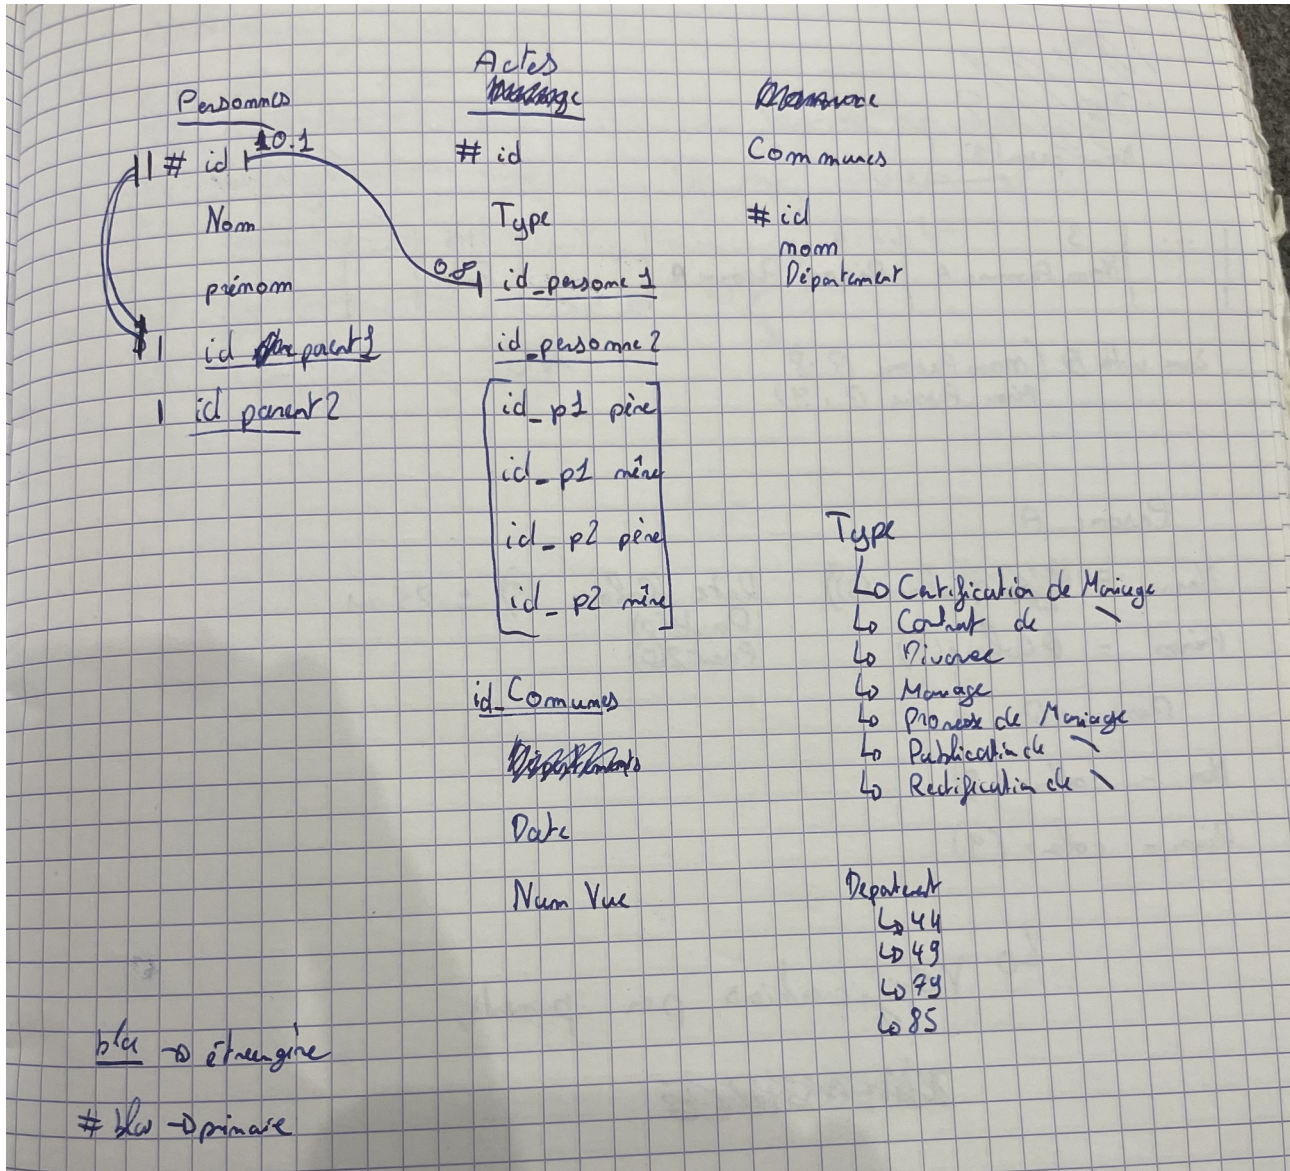 Personnes
# id 0.1
Nom
prénom
id parent1
id parent2
Actes
# id
Type
0.8 id_persone 1
id_personne 2
id_p1 père
id_p1 mère
id_p2 père
id_p2 mère
id_Comunes
Date
Num Vue
Communes
# id
nom
Département
Type
↳ Certification de Mariage
↳ Contrat de \
↳ Divorce
↳ Mariage
↳ Promesse de Mariage
↳ Publication de \
↳ Rectification de \
Departement
↳ 44
↳ 49
↳ 79
↳ 85
bla → étrangère
# bla → primaire